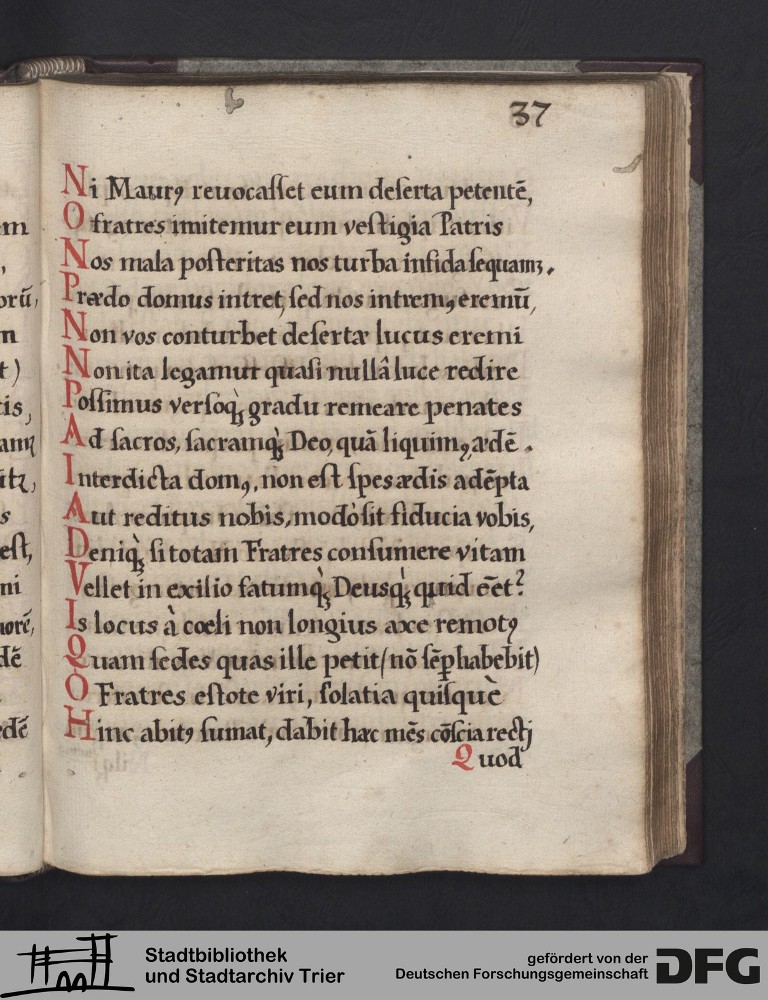 37
Ni Maurꝰ reuocaſſet eum deſerta petentē,
O fratres imitemur eum veſtigia Patris
Nos mala poſteritas nos turba infida ſequamꝫ.
Prædo domus intret, ſed nos intremꝰ eremū,
Non vos conturbet deſertæ lucus eremi
Non ita legamur quaſi nullâ luce redire
Poſſimus verſoqꝫ̀ gradu remeare penates
Ad ſacros, ſacramqꝫ̀ Deo, quā liquimꝰ, ædē.
Interdicta domꝰ, non eſt ſpes ædis adēpta
Aut reditus nobis, modò ſit fiducia vobis,
Deniqꝫ̀ ſi totam Fratres conſumere vitam
Vellet in exilio fatumqꝫ̀ Deusqꝫ̀ quid eēt?
Is locus à cœli non longius axe remotꝰ
Quam ſedes quas ille petit (nō ſēꝑ habebit)
O Fratres eſtote viri, ſolatia quiſquè
Hinc abitꝰ ſumat, dabit hæc mēs cōſcia rectj
Quod
em
,
orū,
m
t)
tis,
amꝫ
itꝫ,
s
eſt,
mi
morē,
dē
edē
Stadtbibliothek
und Stadtarchiv Trier
gefördert von der
Deutschen Forschungsgemeinschaft
DFG